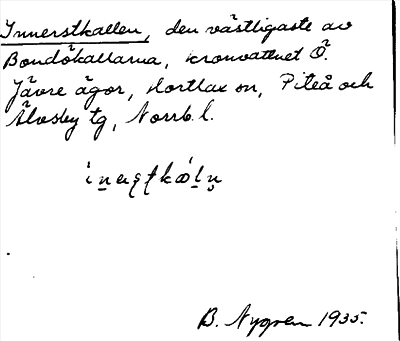 Innerstkallen, den västligaste av
Bondökallarna, kronvattnet Ö.
Jävre ägor, Hortlax sn, Piteå och
Älvsby tg, Norrb. l.
B. Nygren 1935.